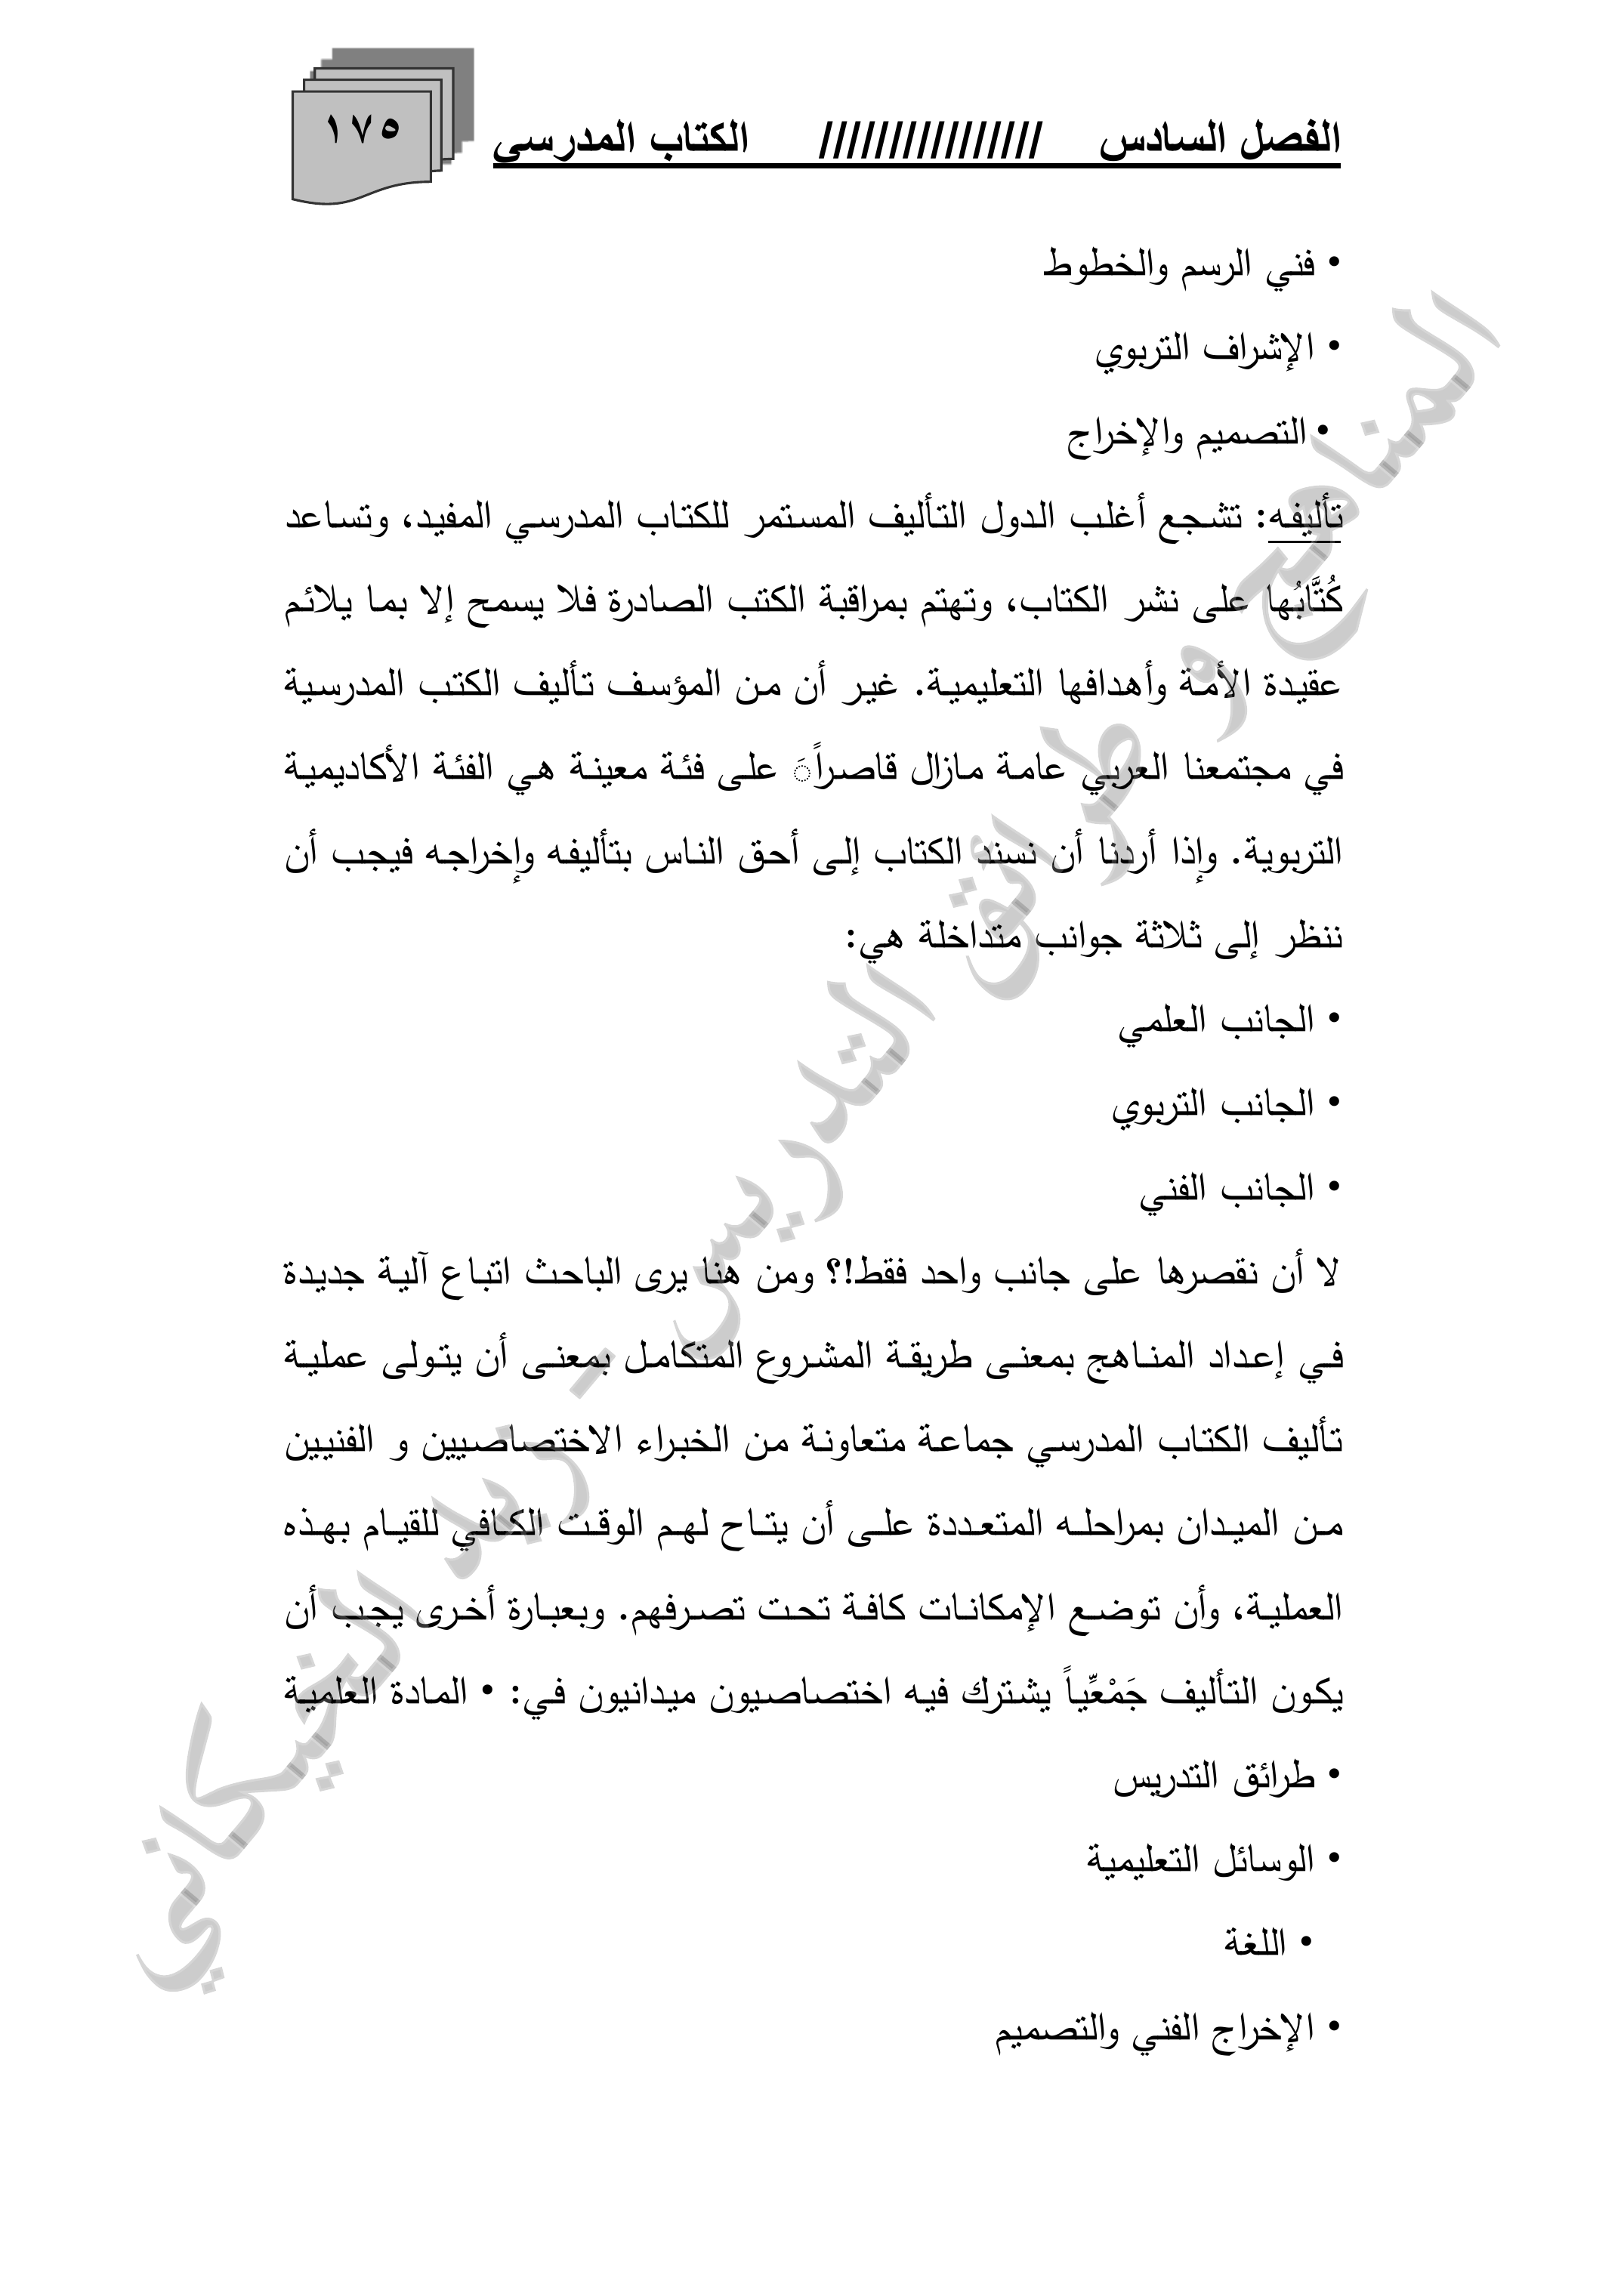 الفصل السادس //////////////// الكتاب المدرسي
١٧٥
• فني الرسم والخطوط
• الإشراف التربوي
• التصميم والإخراج
تأليفه: تشجع أغلب الدول التأليف المستمر للكتاب المدرسي المفيد، وتساعد
كُتَّابُها على نشر الكتاب، وتهتم بمراقبة الكتب الصادرة فلا يسمح إلا بما يلائم
عقيدة الأمة وأهدافها التعليمية. غير أن من المؤسف تأليف الكتب المدرسية
في مجتمعنا العربي عامة مازال قاصراًَ على فئة معينة هي الفئة الأكاديمية
التربوية. وإذا أردنا أن نسند الكتاب إلى أحق الناس بتأليفه وإخراجه فيجب أن
ننظر إلى ثلاثة جوانب متداخلة هي:
• الجانب العلمي
• الجانب التربوي
• الجانب الفني
لا أن نقصرها على جانب واحد فقط!؟ ومن هنا يرى الباحث اتباع آلية جديدة
في إعداد المناهج بمعنى طريقة المشروع المتكامل بمعنى أن يتولى عملية
تأليف الكتاب المدرسي جماعة متعاونة من الخبراء الاختصاصيين و الفنيين
من الميدان بمراحله المتعددة على أن يتاح لهم الوقت الكافي للقيام بهذه
العملية، وأن توضع الإمكانات كافة تحت تصرفهم. وبعبارة أخرى يجب أن
يكون التأليف جَمْعِّياً يشترك فيه اختصاصيون ميدانيون في: • المادة العلمية
• طرائق التدريس
• الوسائل التعليمية
• اللغة
• الإخراج الفني والتصميم
المناهج و طرائق التدريس - زيد الخيكاني